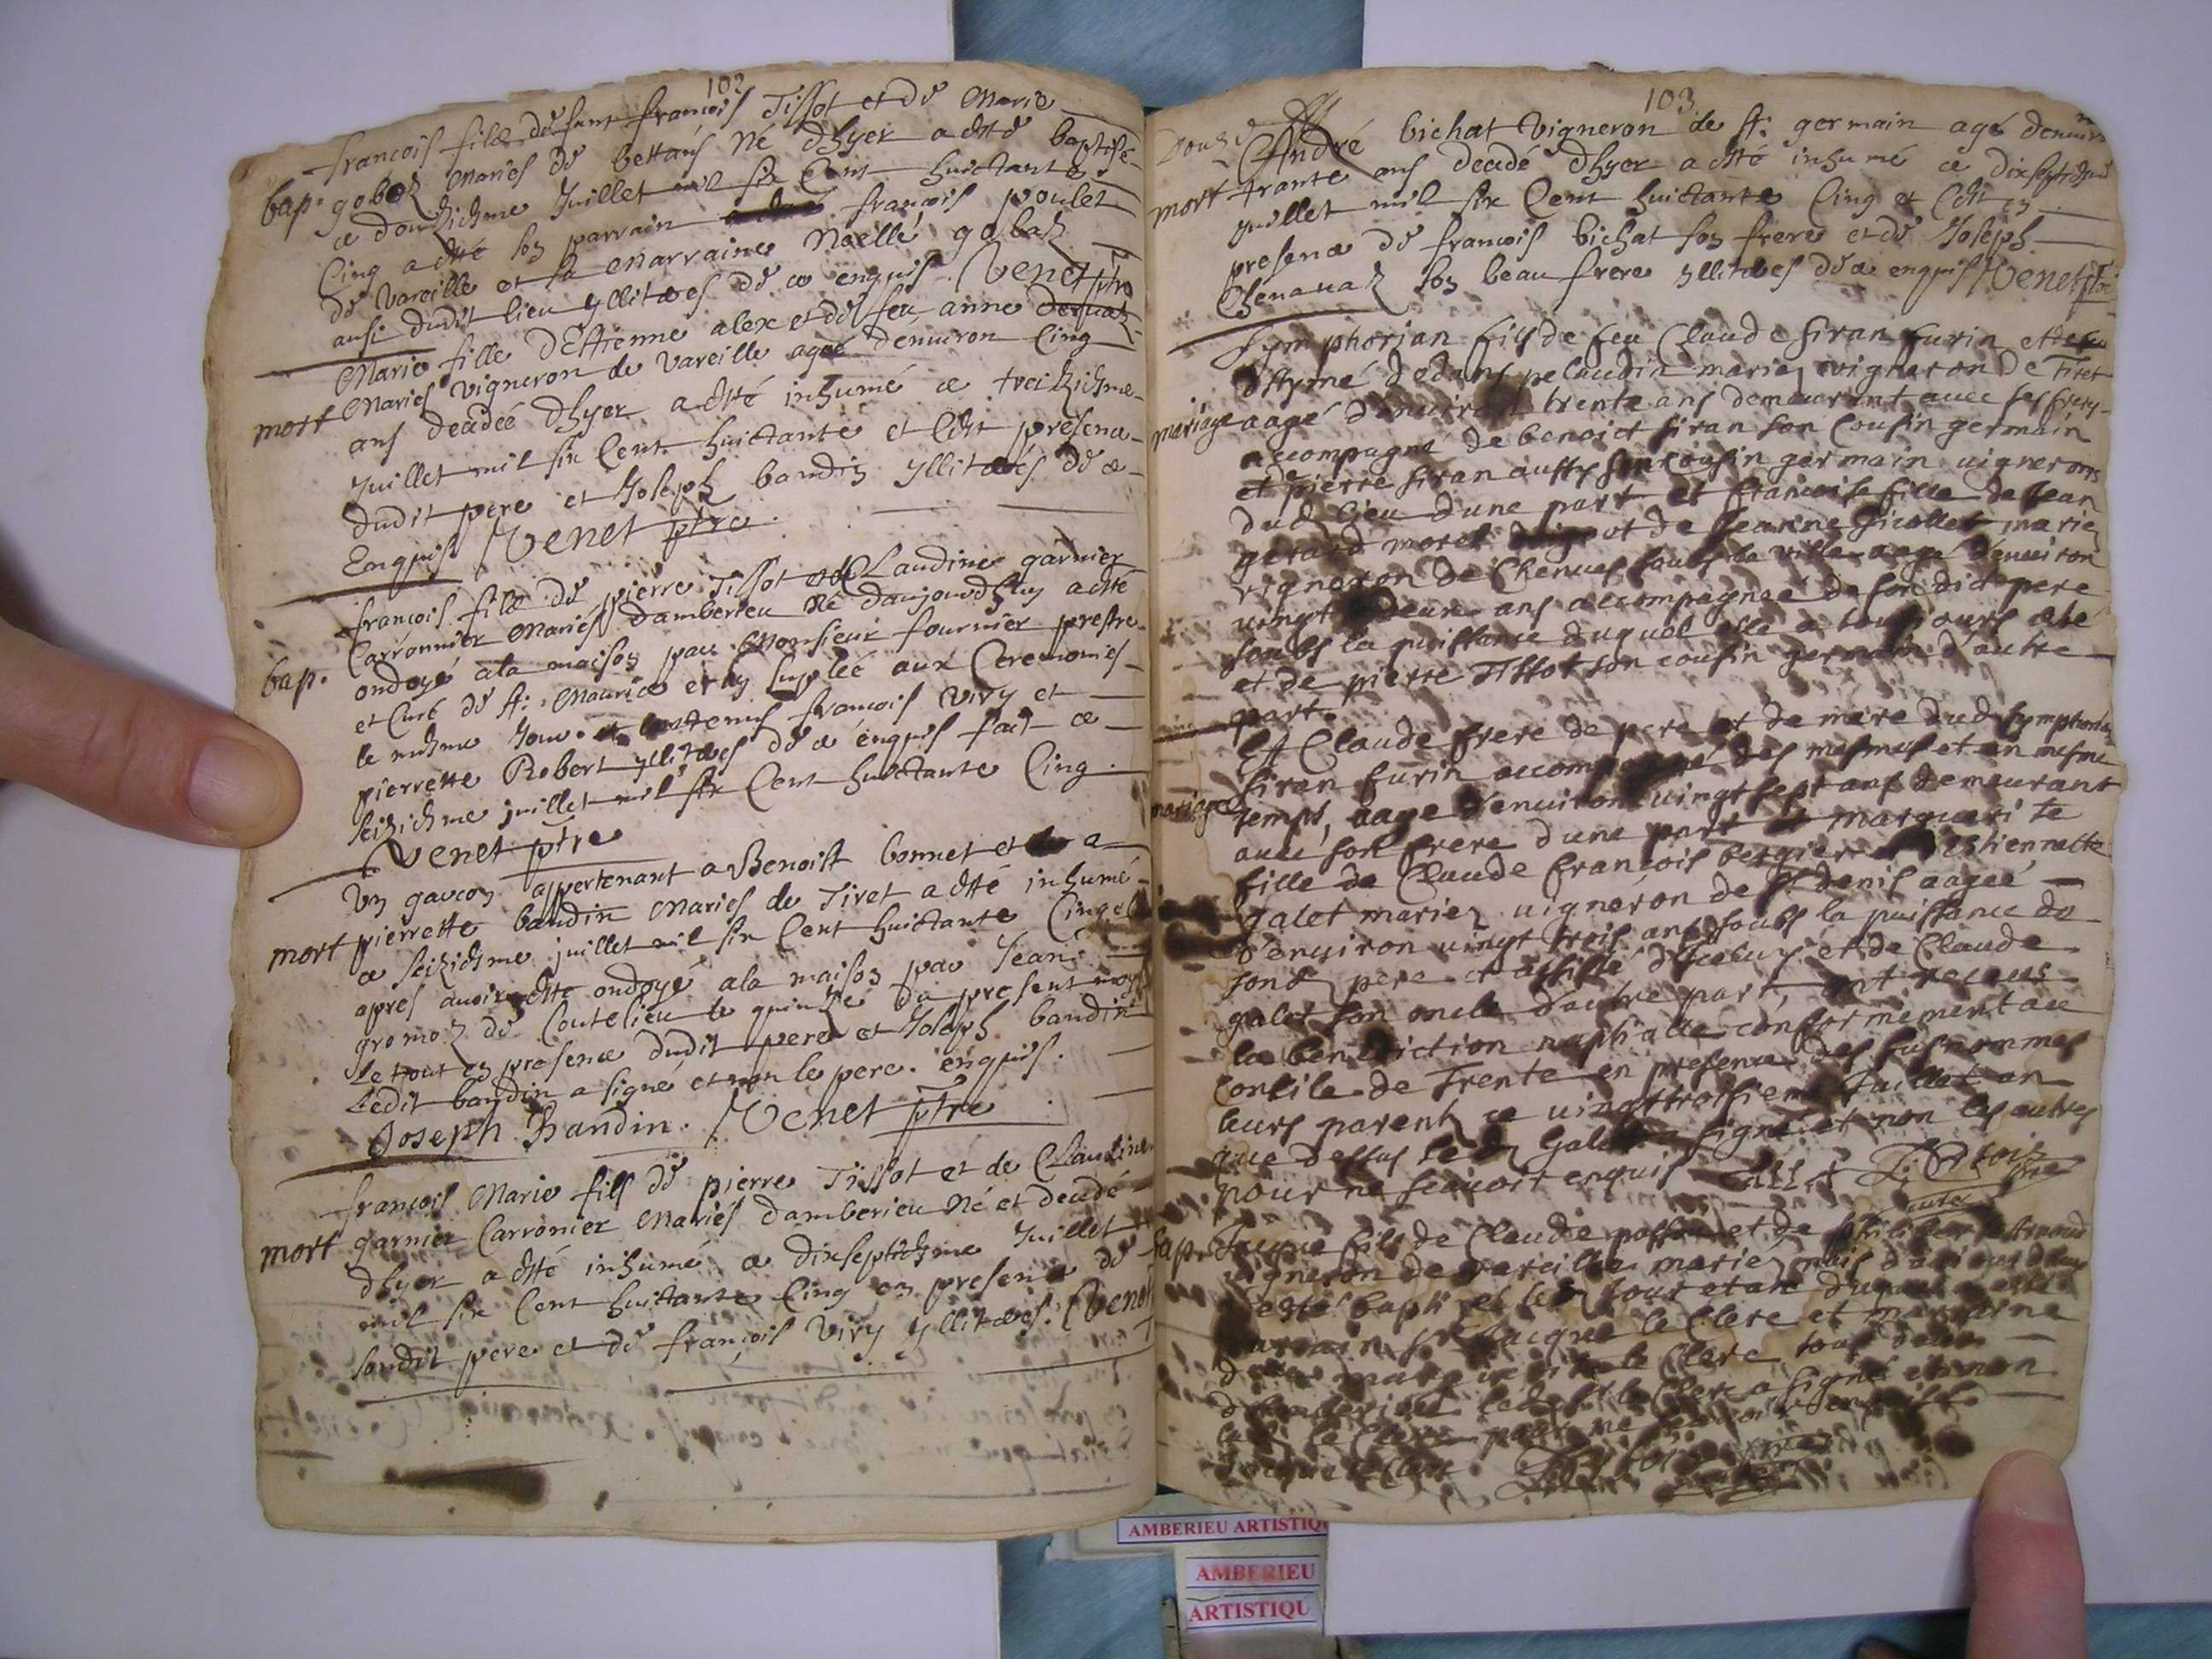 102
francois fils de feu francois Tissot et de Marie
bap. gobet Mariés de bettans Né dhyer a esté baptisé
ce douziesme Juillet mil six Cent huictante
Cinq a esté son parrain francois poulet
de Vareille et sa Marraine Noellé gobat
ausi dudit lieu yllitarés de ce enquis Venet ptre
Marie fille dEttienne alex et de feu anne
mort Mariés Vigneron de Vareille agée denuiron Cinq
ans decedéé dhyer a esté inhumé ce treiziesme
Juillet mil six Cent huictante et Cinq presence
dudit pere et Joseph baudin yllitarés de ce
Enquis Venet ptre
francois fils de pierre Tissot et de Claudine garnier
Carronnier Mariés damberieu Né daujourdhuy a esté
bap. ondoyé a la maison par Monsieur fournier prestre
et Curé de st. Maurice et luy suplée aux Ceremonies
le mesme Jour francois Viry et
pierrette Robert yllitarés de ce enquis fait ce
seiziesme juillet mil six Cent huictante Cinq
Venet ptre
Un garcon appertenant a Benoist bonnet et a
mort pierrette baudin Mariés de Tiret a esté inhumé
ce seiziesme juillet mil six Cent huictante Cinq
apres auoir esté ondoyé a la maison par Jean
gromoz de Coutelieu le quinze du present mois
Le tout en presence dudit pere et Joseph baudin
Ledit baudin a signé et non le pere enquis.
Joseph Baudin. Venet ptre
francois Marie fils de pierre Tissot et de Claudine
mort garnier Carronier Mariés damberieu Né et decedé
dhyer a esté inhumé ce dixseptiesme Juillet
mil six Cent huictante Cinq en presence de
sondit pere et de francois Viry yllitarés. Venet
103
André bichat Vigneron de st. germain agé denuiron
mort trante ans decedé dhyer a esté inhumé ce dixseptiesme
Juillet mil six Cent huictante Cinq et Cest en
presence de francois bichat son frere et de Joseph
Chenauaz son beau frere yllitarés de ce enquis Venet ptre
Symphorian fils de feu Claude siran furin et de feu
pelaudin mariez vigneron de Tiret
mariage aagé denuiron trente ans demeurant auec ses freres
accompagné de benoict siran son Cousin germain
et pierre siran aussy son cousin germain uignerons
dud lieu dune part et francoise fille de Jean
gerard morel et de Jeanne mariez
vigneron de Chenues soubs la ville aagé denuiron
uingt deux ans accompagnée de son dict pere
soubs la puissance duquel elle a tousjours esté
et de pierre Tissot son cousin germain d'autre
part.
Et Claude frere de pere et de mere dud symphorian
siran furin accompagné des mesmes et en mesme
mariage temps, aage denuiron uingt sept ans demeurant
auec son frere dune part et margueri te
fille de Claude francois bergier et estiennette
galet mariez uigneron de st denis aageé
denuiron uingt trois ans soubs la puissance de
sond pere et assisté diceluy et de Claude
galet son oncle d'autre part, ont receus
la benediction nuptialle conformement au
Concile de Trente en presence des susnommes
leurs parents ce uingttroisieme Juillet an
que dessus led Galet a signé et non les autres
pour ne scauoir enquis Galet
bap. Jacque fils de Claude et de
uigneron de vareille mariez
a esté bapti
parrain sr Jacque le Clerc et marraine
marguerite le Clerc tous
damberieu led sr le Clerc a signé et non
lad le Clerc pour ne scauoir enquise
Jacque le Clerc
AMBERIEU ARTISTIQU
AMBERIEU
ARTISTIQU